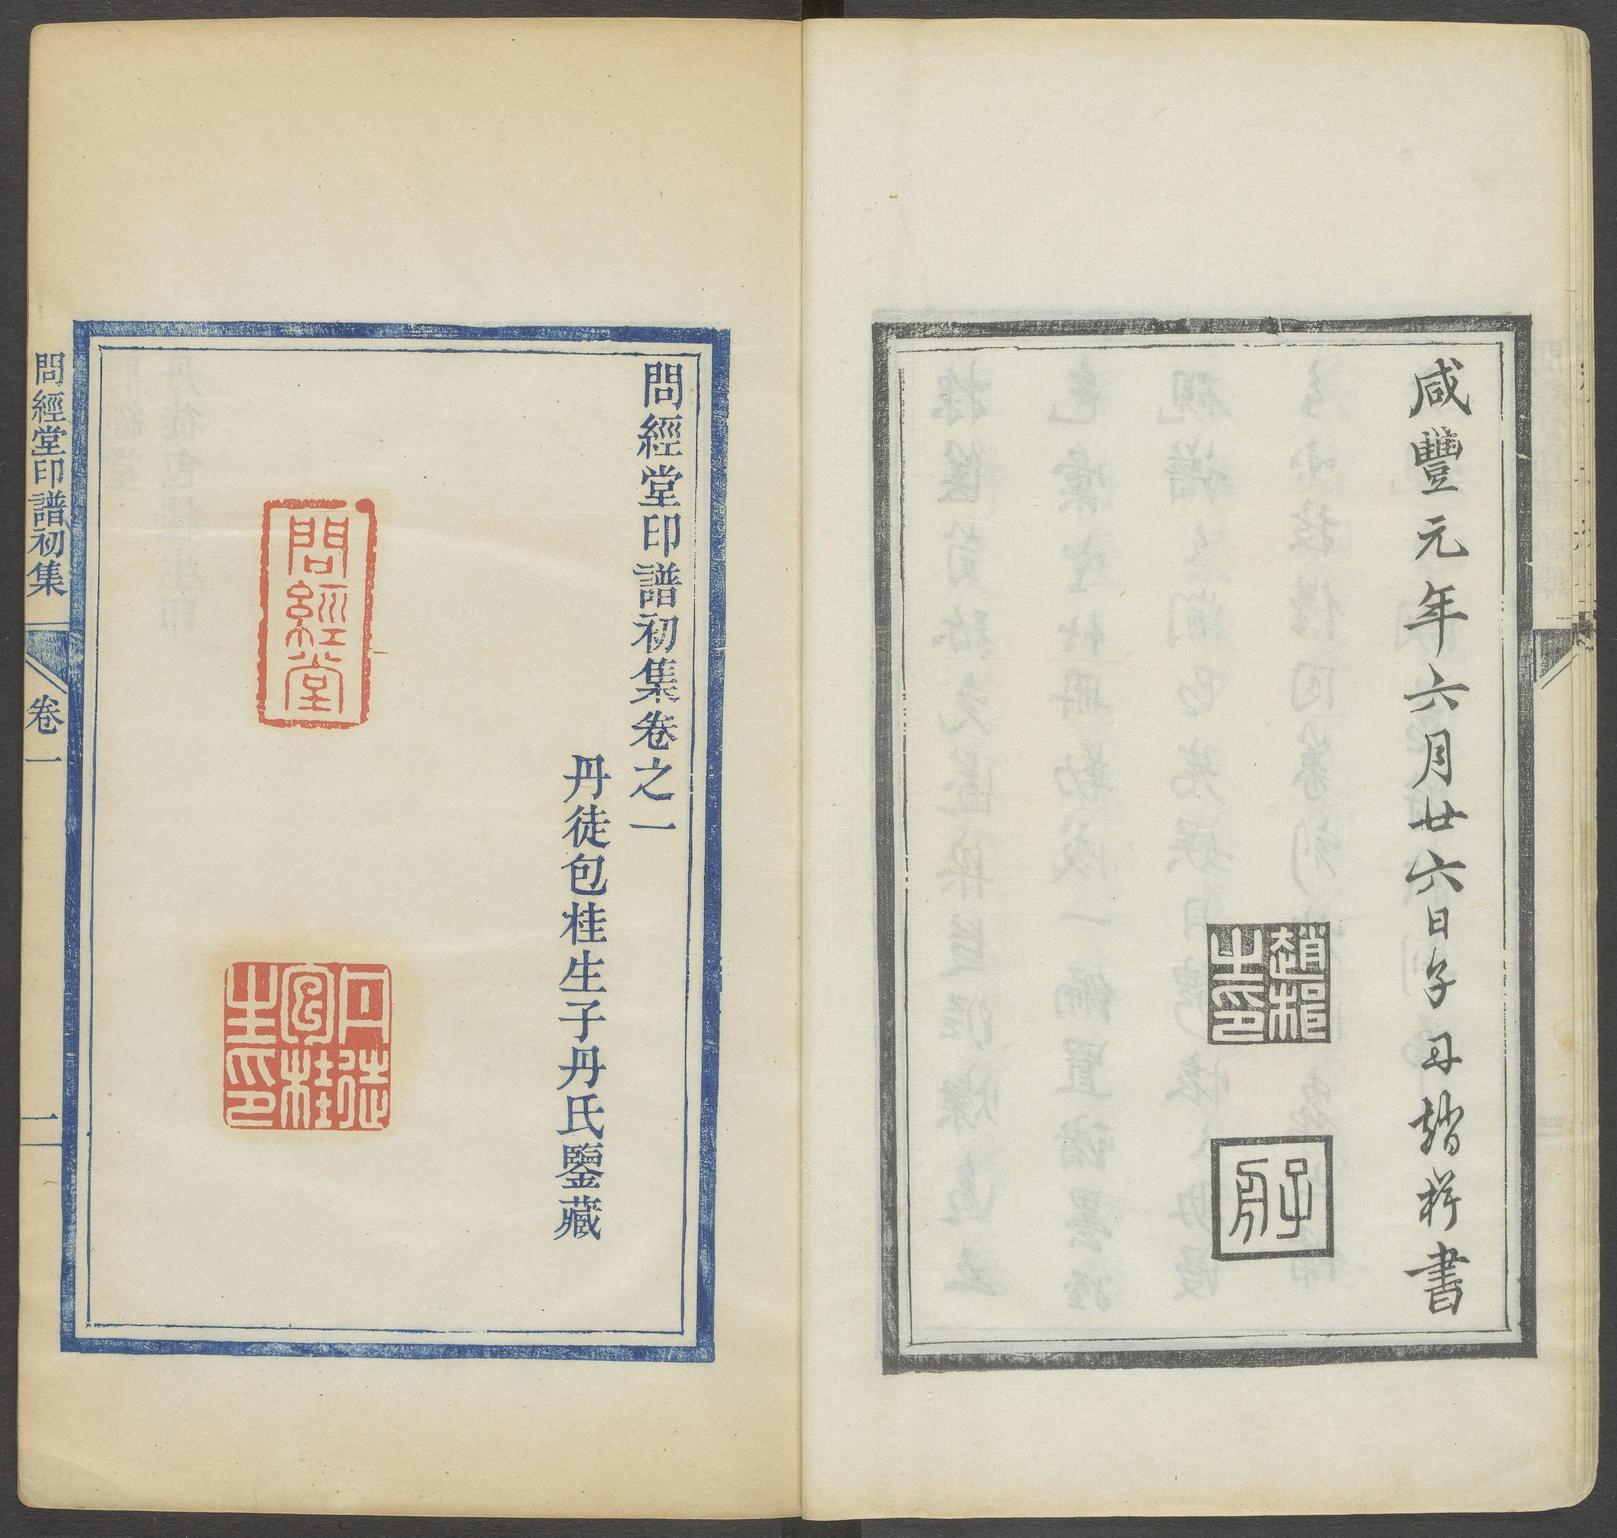 咸豐元年六月廿六日子舟趙楫書
趙楫之印
子舟
問經堂印譜初集卷之一
丹徒包桂生子丹氏鑒藏
問經堂
丹徒包桂生印
問經堂印譜初集 卷一 一